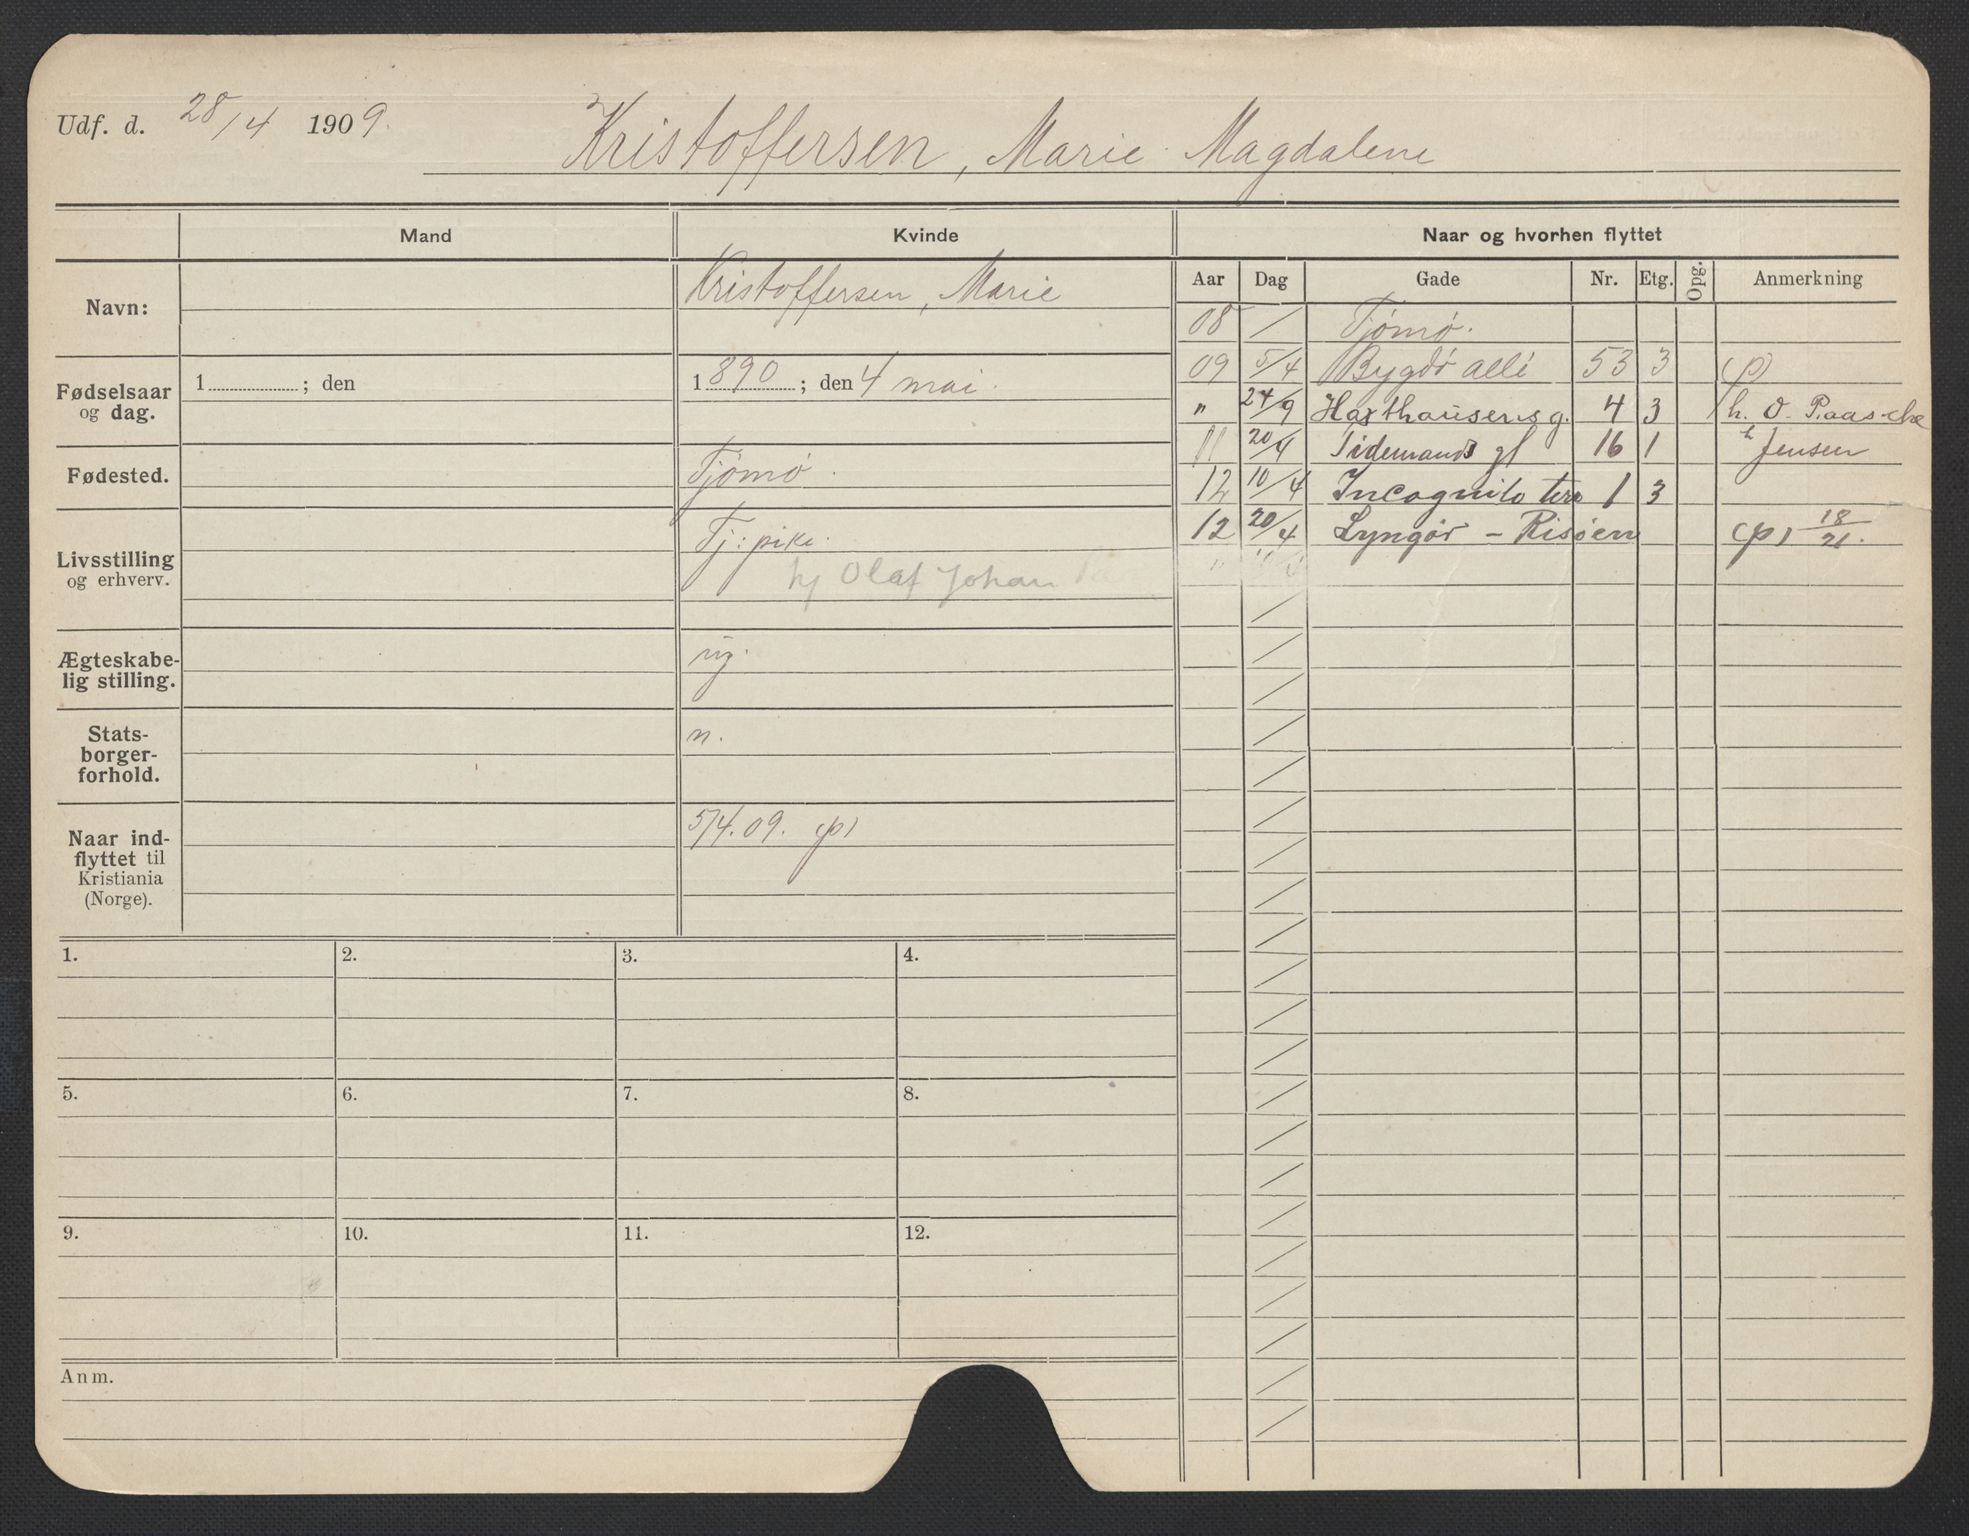 Udf. d. 28/4 1909.
Kristoffersen, Marie Magdalene
Mand
Kvinde
Naar og hvorhen flyttet
Navn:
Kristoffersen, Marie
Fødselsaar og dag.
1 ; den
1890; den 4 mai.
Fødested.
Tjømø.
Livsstilling og erhverv.
Tj: pike.
hj Olaf Johan
Ægteskabe-
lig stilling.
ug.
Stats-
borger-
forhold.
n.
Naar ind-
flyttet til
Kristiania
(Norge).
5/4.09. (p)
Aar Dag Gade Nr. Etg. Opg. Anmerkning
08 / Tjømø.
09 5/4 Bygdø allé 53 3 (p)
" 24/9 Haxthausensg. 4 3 h. O. Paasche
11 20/4 Tidemands gt 16 1 h Jensen
12 10/4 Incognito terr 1 3
12 20/4 Lyngør - Risøen (p) 18/21.
1. 2. 3. 4.
5. 6. 7. 8.
9. 10. 11. 12.
Anm.